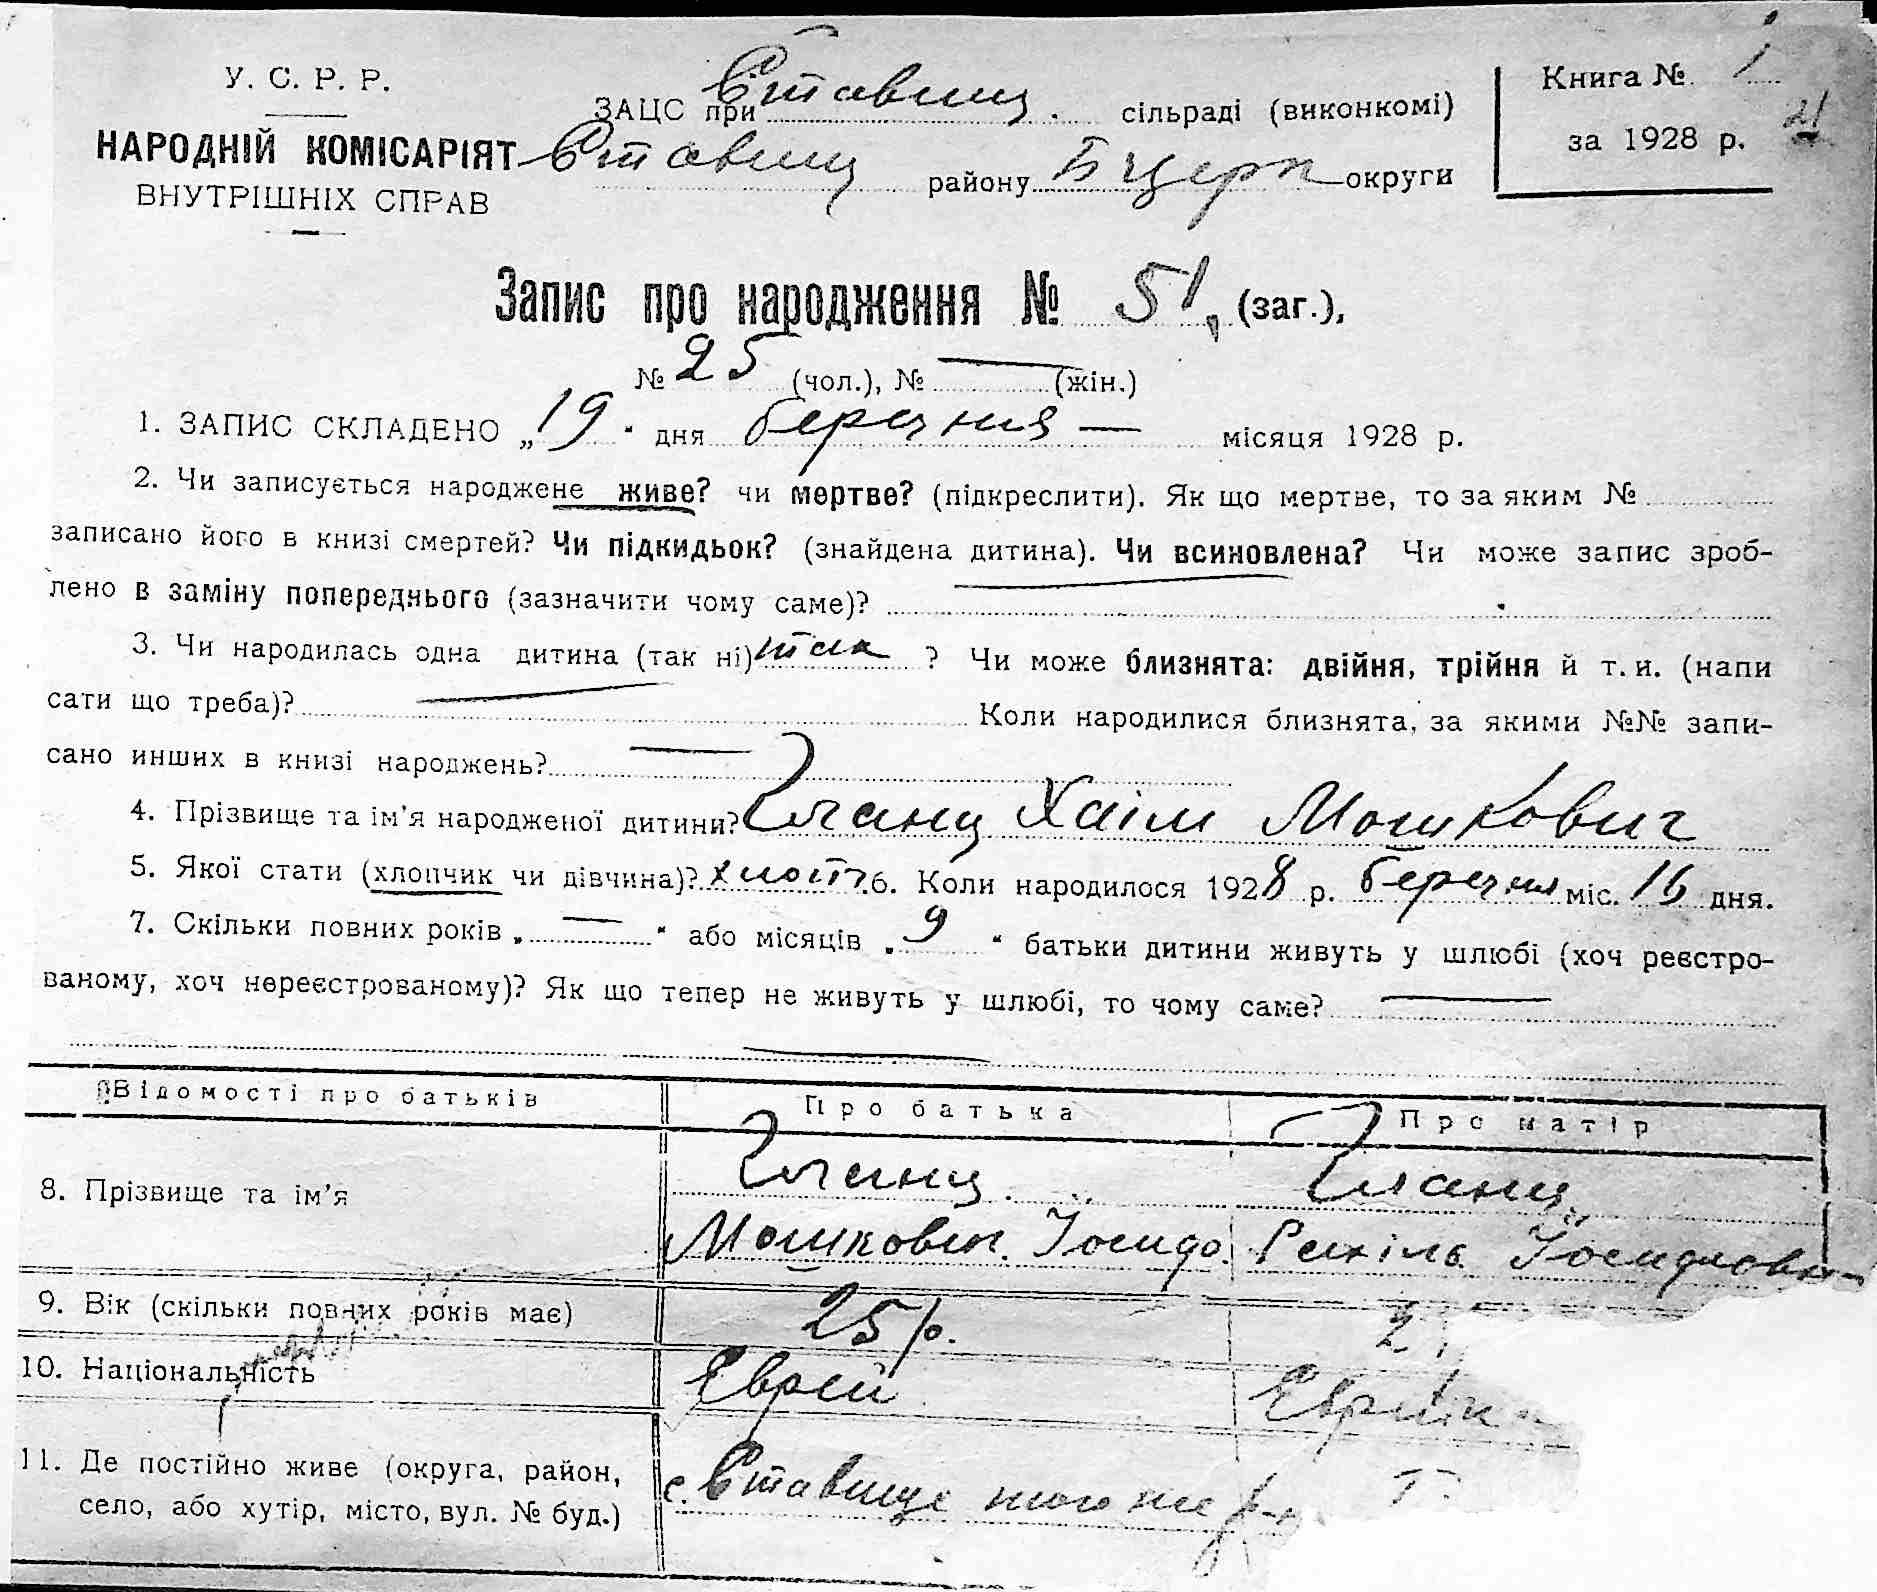 У. С. Р. Р.
НАРОДНІЙ КОМІСАРІЯТ
ВНУТРІШНІХ СПРАВ
ЗАЦС при Ставищ. сільраді (виконкомі)
Ставищ району Бцерк округи
Книга № 1
за 1928 р.
Запис про народження № 51, (заг.),
№ 25 (чол.), № — (жін.)
1. ЗАПИС СКЛАДЕНО „19" дня березня — місяця 1928 р.
2. Чи записується народжене живе? чи мертве? (підкреслити). Як що мертве, то за яким №
записано його в книзі смертей? Чи підкидьок? (знайдена дитина). Чи всиновлена? Чи може запис зроб-
лено в заміну попереднього (зазначити чому саме)?
3. Чи народилась одна дитина (так ні) так ? Чи може близнята: двійня, трійня й т. и. (напи
сати що треба)? — Коли народилися близнята, за якими №№ запи-
сано инших в книзі народжень? —
4. Прізвище та ім'я народженої дитини? Гланц Хаім Мошкович
5. Якої стати (хлопчик чи дівчина)? хлопч. 6. Коли народилося 1928 р. березня міс. 16 дня.
7. Скільки повних років „ — " або місяців „ 9 " батьки дитини живуть у шлюбі (хоч реєстро-
ваному, хоч нереєстрованому)? Як що тепер не живуть у шлюбі, то чому саме? —
Відомості про батьків Про батька Про матір
8. Прізвище та ім'я Гланц Гланц
Мошкович
9. Вік (скільки повних років має) 25 р. 2
10. Національність Еврей Еврейк
11. Де постійно живе (округа, район,
село, або хутір, місто, вул. № буд.) с. Ставище того ж р-